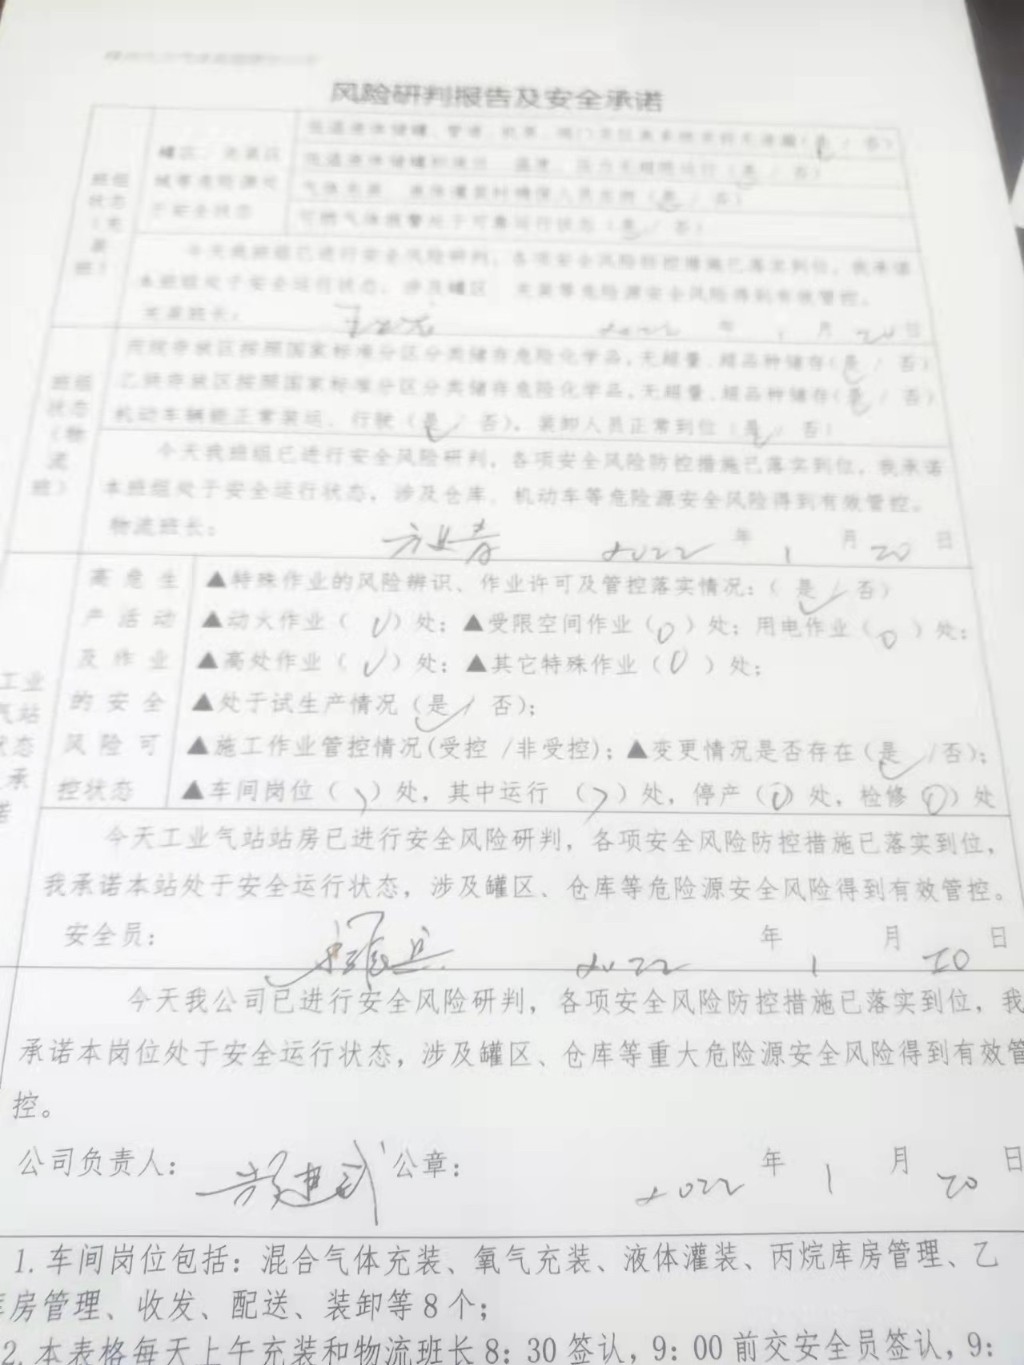 风险研判报告及安全承诺
班组状态（充装班）
罐区、充装区域等危险源处于安全状态
低温液体储罐、管道、机泵、阀门
低温液体储罐和液位、温度、压力无超限运行（是 / 否）
气体充装、液体灌装时确保人员在岗（是 / 否）
可燃气体报警处于可靠运行状态（是 / 否）
今天我班组已进行安全风险研判，各项安全风险防控措施已落实到位，我承诺
本班组处于安全运行状态，涉及罐区、充装等危险源安全风险得到有效管控。
充装班长： 2022 年 1 月 20 日
班组状态（物流班）
丙烷存放区按照国家标准分区分类储存危险化学品，无超量、超品种储存（是 / 否）
乙炔存放区按照国家标准分区分类储存危险化学品，无超量、超品种储存（是 / 否）
机动车辆能正常装运、行驶（是 / 否），装卸人员正常到位（是 / 否）
今天我班组已进行安全风险研判，各项安全风险防控措施已落实到位，我承诺
本班组处于安全运行状态，涉及仓库、机动车等危险源安全风险得到有效管控。
物流班长： 2022 年 1 月 20 日
工业气站状态承诺
高危生产活动及作业的安全风险可控状态
▲特殊作业的风险辨识、作业许可及管控落实情况：（是 / 否）
▲动火作业（0）处；▲受限空间作业（0）处；用电作业（0）处；
▲高处作业（0）处；▲其它特殊作业（0）处；
▲处于试生产情况（是 / 否）；
▲施工作业管控情况(受控 /非受控)；▲变更情况是否存在（是 /否）；
▲车间岗位（ ）处，其中运行（ ）处，停产（0）处，检修（0）处
今天工业气站站房已进行安全风险研判，各项安全风险防控措施已落实到位，
我承诺本站处于安全运行状态，涉及罐区、仓库等危险源安全风险得到有效管控。
安全员： 2022 年 1 月 20 日
今天我公司已进行安全风险研判，各项安全风险防控措施已落实到位，我
承诺本岗位处于安全运行状态，涉及罐区、仓库等重大危险源安全风险得到有效管
控。
公司负责人： 公章： 2022 年 1 月 20 日
1.车间岗位包括：混合气体充装、氧气充装、液体灌装、丙烷库房管理、乙
库房管理、收发、配送、装卸等8个；
2.本表格每天上午充装和物流班长8：30签认，9：00前交安全员签认，9：